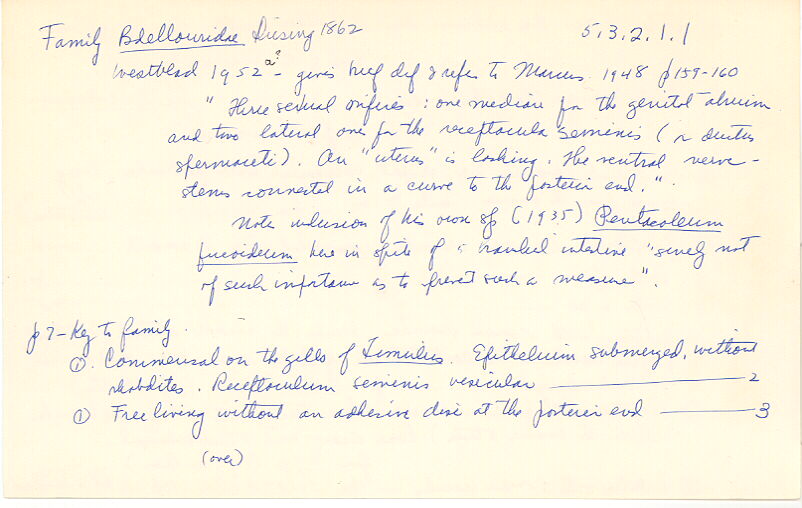 Family Bdellouridae Diesing 1862 5.3.2.1.1
Westblad 1952 a? - gives brief def & refers to Marcus 1948 p159-160
" Three sexual orifices : one mediane for the genital atrium
and two lateral ones for the receptacula seminis (
spermaceti). An "uterus" is lacking. The ventral nerve-
stems connected in a curve to the posterior end."
Note inclusion of his own sp (1935) Pentacoleum
fucoideum here in spite of branched intestine "surely not
of such importance as to prevent such a measure".
p7 - Key to family.
① . Commensal on the gills of Limulus. Epithelium submerged, without
rhabdites. Receptaculum seminis vesicular 2
① Free living without an adhesive disc at the posterior end 3
(over)